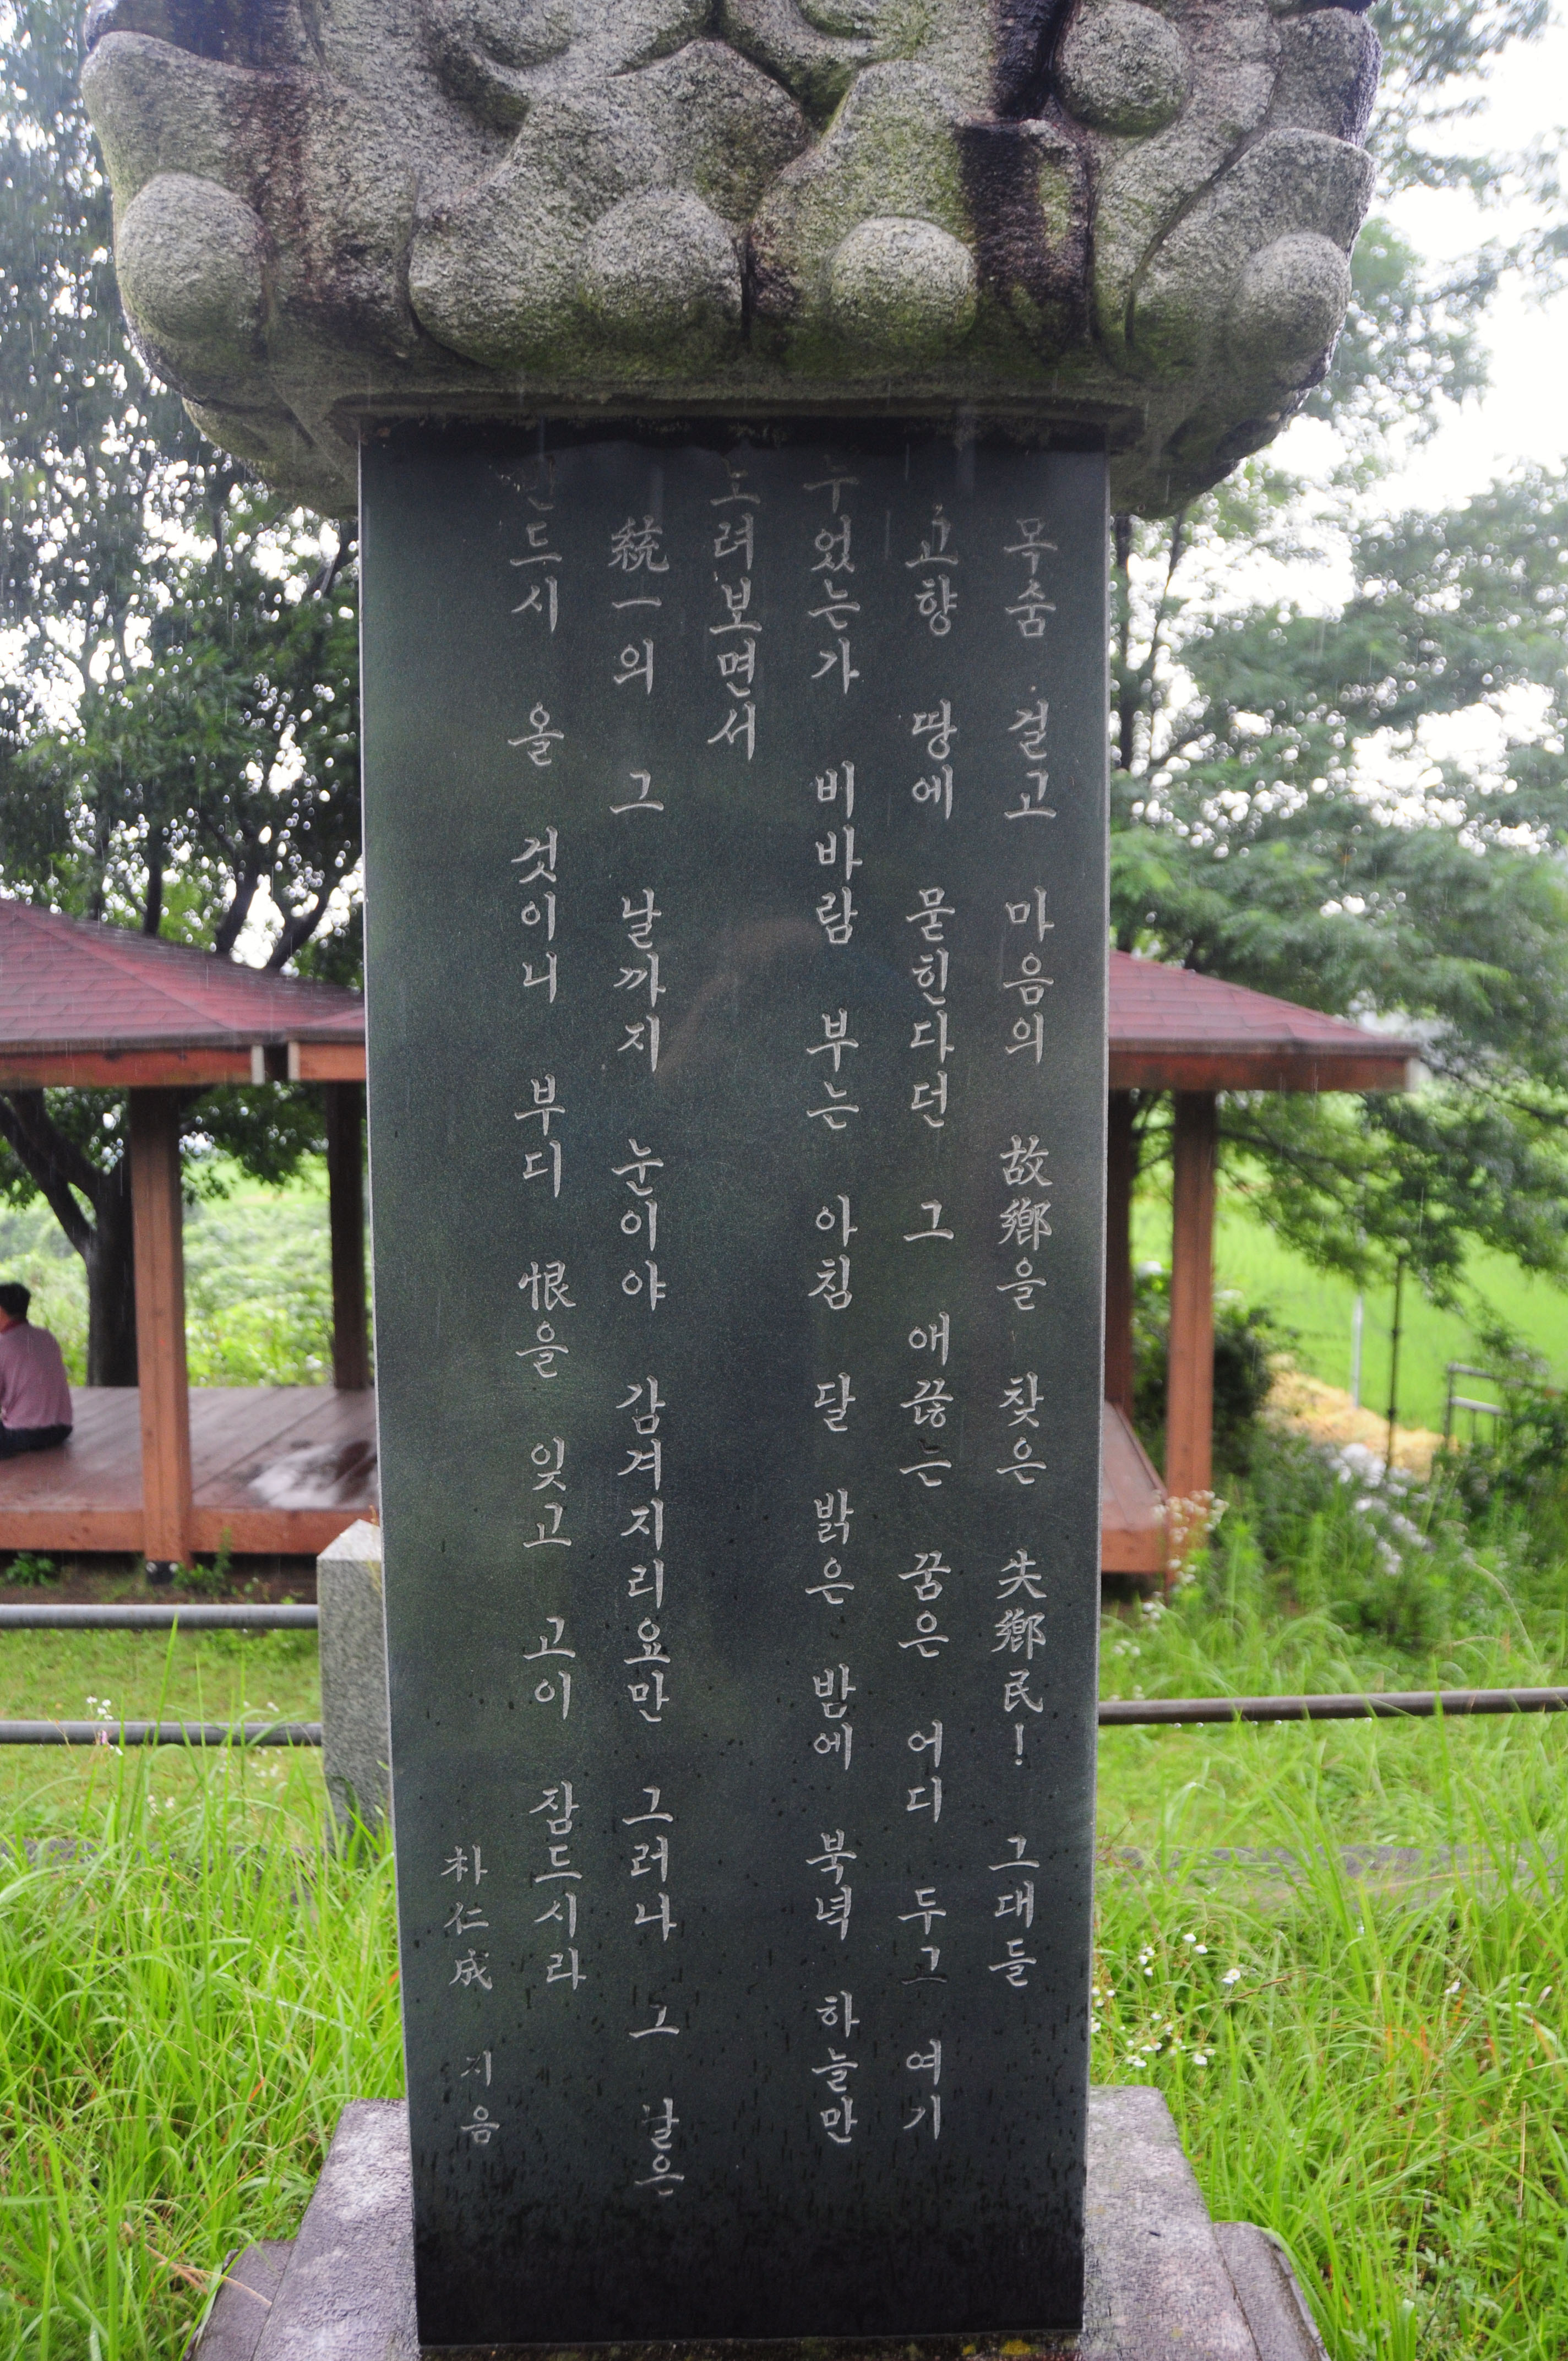 목숨 걸고 마음의 故鄕을 찾은 失鄕民! 그대들
고향 땅에 묻힌다던 그 애끊는 꿈은 어디 두고 여기
누었는가 비바람 부는 아침 달 밝은 밤에 북녘 하늘만
려보면서
統一의 그 날까지 눈이야 감겨지리요만 그러나 그 날은
드시 올 것이니 부디 恨을 잊고 고이 잠드시라
朴仁成 지음